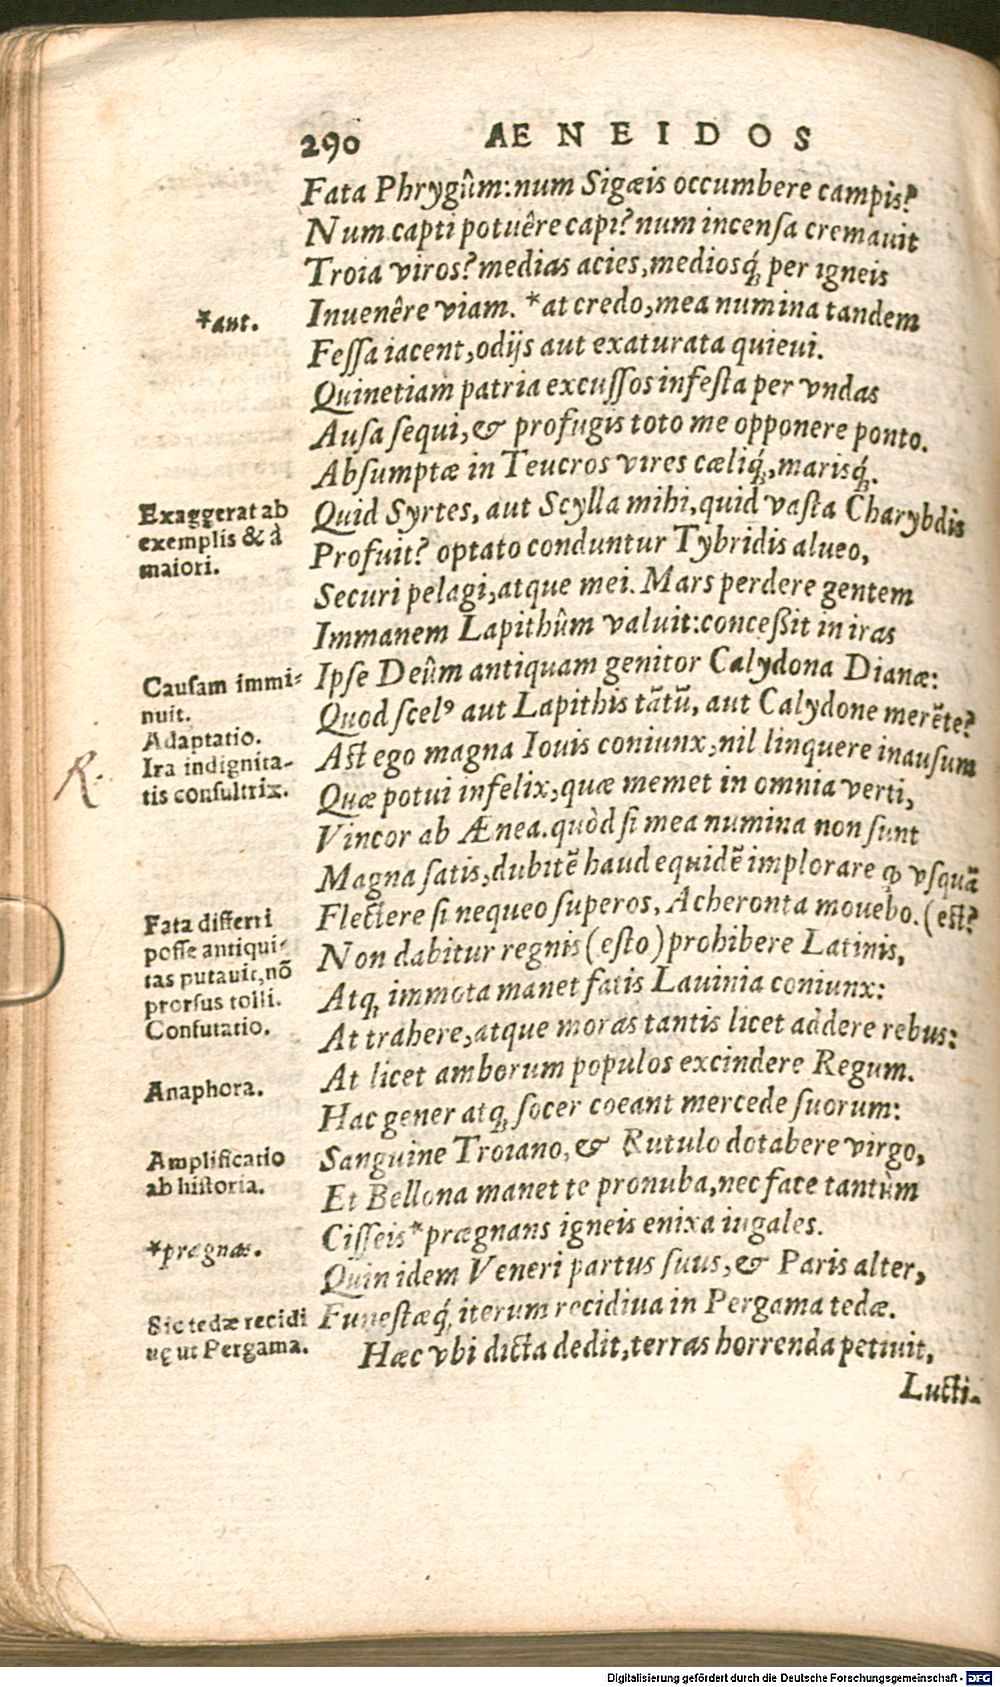 290 AENEIDOS
Fata Phrygûm: num Sigæis occumbere campis?
Num capti potuêre capi? num incensa cremauit
Troia viros? medias acies, mediosq́; per igneis
*aut.
Inuenêre viam. *at credo, mea numina tandem
Fessa iacent, odijs aut exaturata quieui.
Quinetiam patria excussos infesta per vndas
Ausa sequi, & profugis toto me opponere ponto.
Absumptæ in Teucros vires cæliq́;, marisq́;.
Exaggerat ab
exemplis & à
maiori.
Quid Syrtes, aut Scylla mihi, quid vasta Charybdis
Profuit? optato conduntur Tybridis alueo,
Securi pelagi, atque mei. Mars perdere gentem
Immanem Lapithûm valuit: conceßit in iras
Causam immi-
nuit.
Adaptatio.
Ira indignita-
tis consultrix.
R.
Ipse Deûm antiquam genitor Calydona Dianæ:
Quod scelꝰ aut Lapithis tātū, aut Calydone merēte?
Ast ego magna Iouis coniunx, nil linquere inausum
Quæ potui infelix, quæ memet in omnia verti,
Vincor ab Ænea. quòd si mea numina non sunt
Magna satis, dubitē haud equidē implorare qđ vsquā
Fata differri
posse antiqui-
tas putauit, nō
prorsus tolli.
Confutatio.
Flectere si nequeo superos, Acheronta mouebo. (est?
Non dabitur regnis (esto) prohibere Latinis,
Atq; immota manet fatis Lauinia coniunx:
At trahere, atque moras tantis licet addere rebus:
Anaphora.
At licet amborum populos excindere Regum.
Hac gener atq; socer coeant mercede suorum:
Amplificatio
ab historia.
Sanguine Troiano, & Rutulo dotabere virgo,
Et Bellona manet te pronuba, nec face tantùm
*prægnas.
Cisseis *prægnans igneis enixa iugales.
Quin idem Veneri partus suus, & Paris alter,
Sic tedæ recidi
uę ut Pergama.
Funestæq́; iterum recidiua in Pergama tedæ.
Hæc vbi dicta dedit, terras horrenda petiuit,
Lucti-
Digitalisierung gefördert durch die Deutsche Forschungsgemeinschaft - DFG